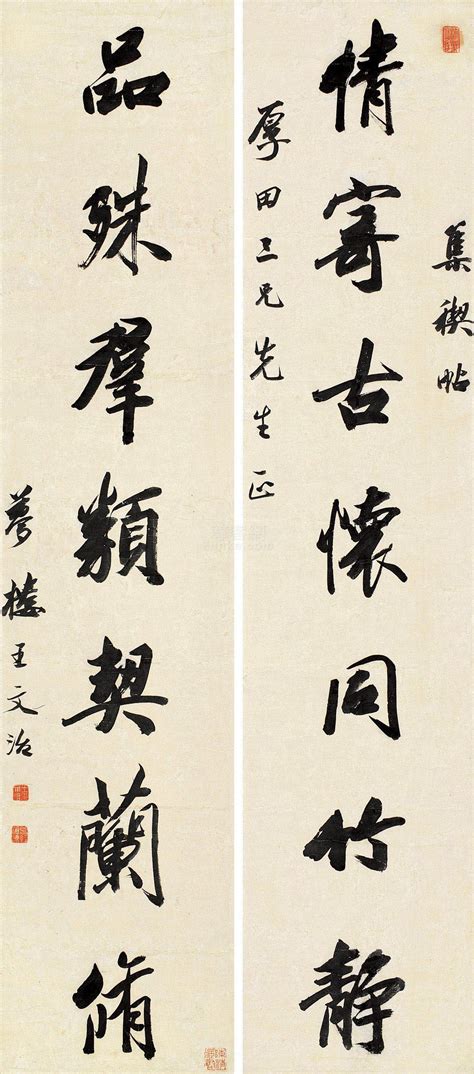 集禊帖
情寄古懷同竹靜
厚田三兄先生正
品殊群類契蘭脩
夢樓王文治